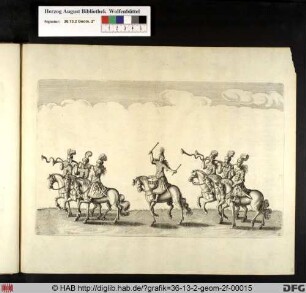 Herzog August Bibliothek Wolfenbüttel
Signatur: 36.13.2 Geom. 2°
© HAB http://diglib.hab.de/?grafik=36-13-2-geom-2f-00015